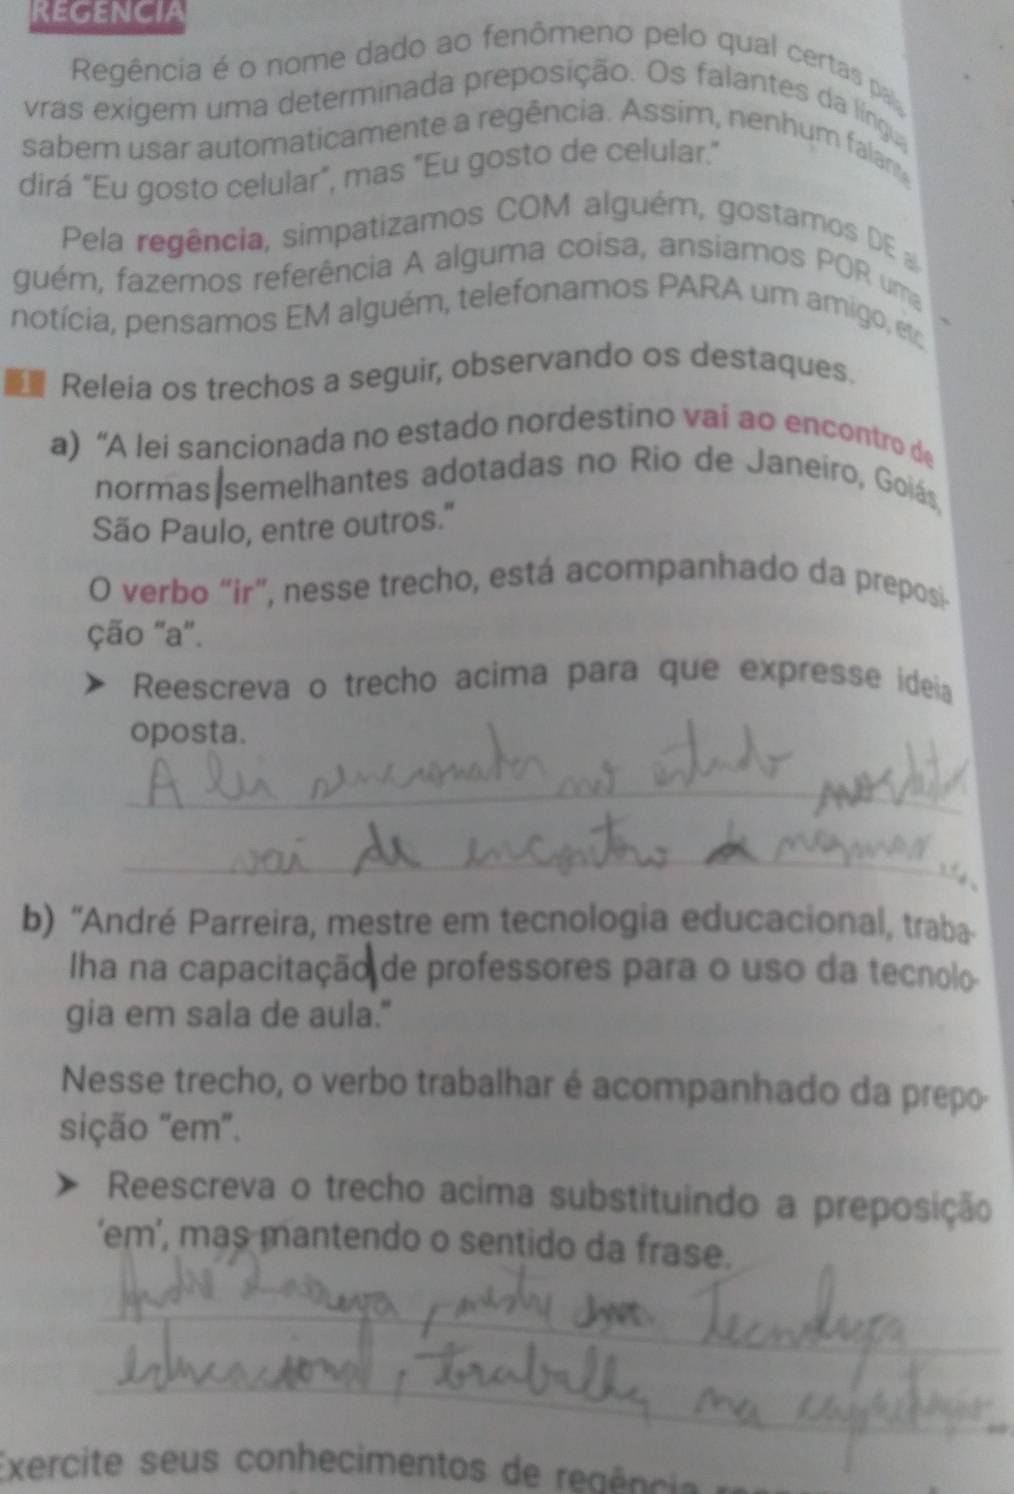 REGÊNCIA
Regência é o nome dado ao fenômeno pelo qual certas pala
vras exigem uma determinada preposição. Os falantes da língua
sabem usar automaticamente a regência. Assim, nenhum falante
dirá "Eu gosto celular", mas "Eu gosto de celular."
Pela regência, simpatizamos COM alguém, gostamos DE al
guém, fazemos referência A alguma coisa, ansiamos POR uma
notícia, pensamos EM alguém, telefonamos PARA um amigo, etc.
1 Releia os trechos a seguir, observando os destaques.
a) "A lei sancionada no estado nordestino vai ao encontro de
normas semelhantes adotadas no Rio de Janeiro, Goiás,
São Paulo, entre outros."
O verbo "ir", nesse trecho, está acompanhado da preposi-
ção "a".
➤ Reescreva o trecho acima para que expresse ideia
oposta.
A lei no estado
vai de encontro
b) "André Parreira, mestre em tecnologia educacional, traba-
lha na capacitação de professores para o uso da tecnolo-
gia em sala de aula."
Nesse trecho, o verbo trabalhar é acompanhado da prepo-
sição "em".
➤ Reescreva o trecho acima substituindo a preposição
'em', mas mantendo o sentido da frase.
André
educacional, trabalha na
Exercite seus conhecimentos de regência